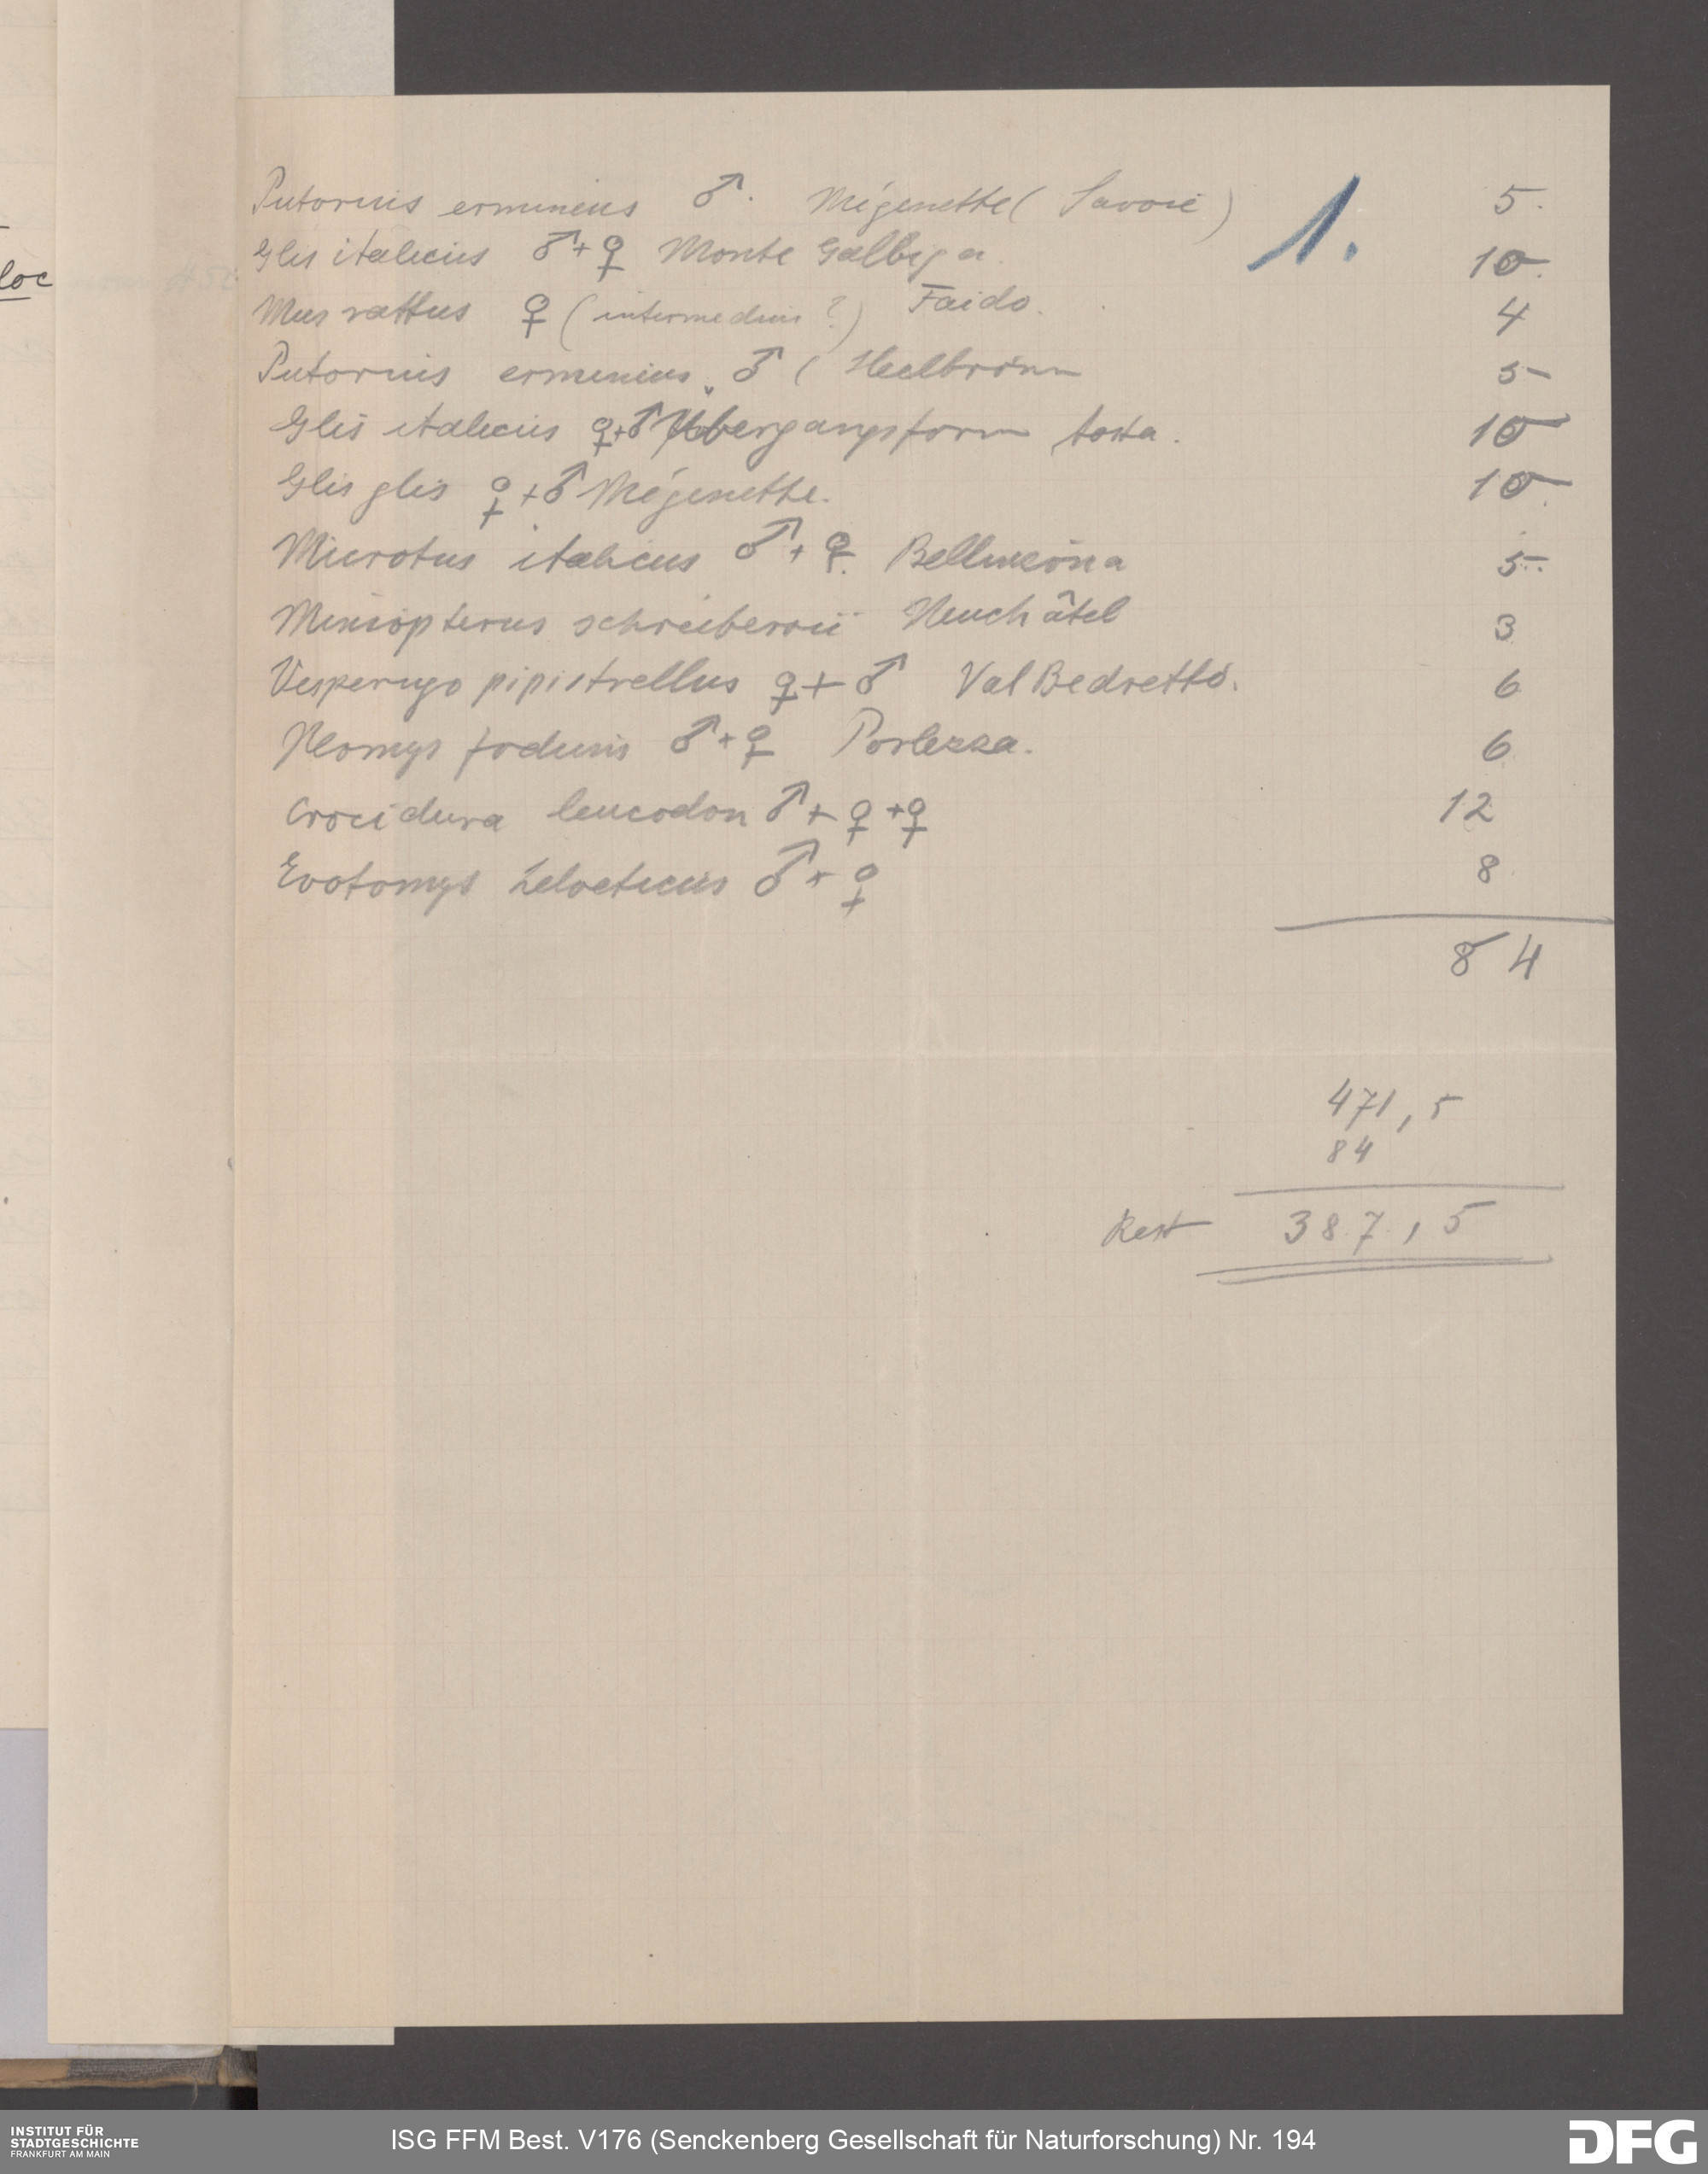 Putorius ermineus ♂. Mégenette (Savoie) 5.
1.
Glis italicus ♂+♀ Monte Galbiga. 10.
loc
Mus rattus ♀ (intermedius?) Faido. 4
Putorius ermineus ♂ ( Heilbronn 5-
Glis italicus ♀+♂ Übergangsform Aosta. 10
Glis glis ♀+♂ Mégenette. 10
Microtus italicus ♂+♀. Bellinzona 5-
Miniopterus schreibersii Neuchâtel 3
Vesperugo pipistrellus ♀+♂ Val Bedretto. 6
Neomys fodiens ♂+♀ Porlezza. 6
Crocidura leucodon ♂+♀+♀ 12
Evotomys helveticus ♂+♀ 8
84
471,5
84
Rest 387,5
INSTITUT FÜR
STADTGESCHICHTE
FRANKFURT AM MAIN
ISG FFM Best. V176 (Senckenberg Gesellschaft für Naturforschung) Nr. 194
DFG